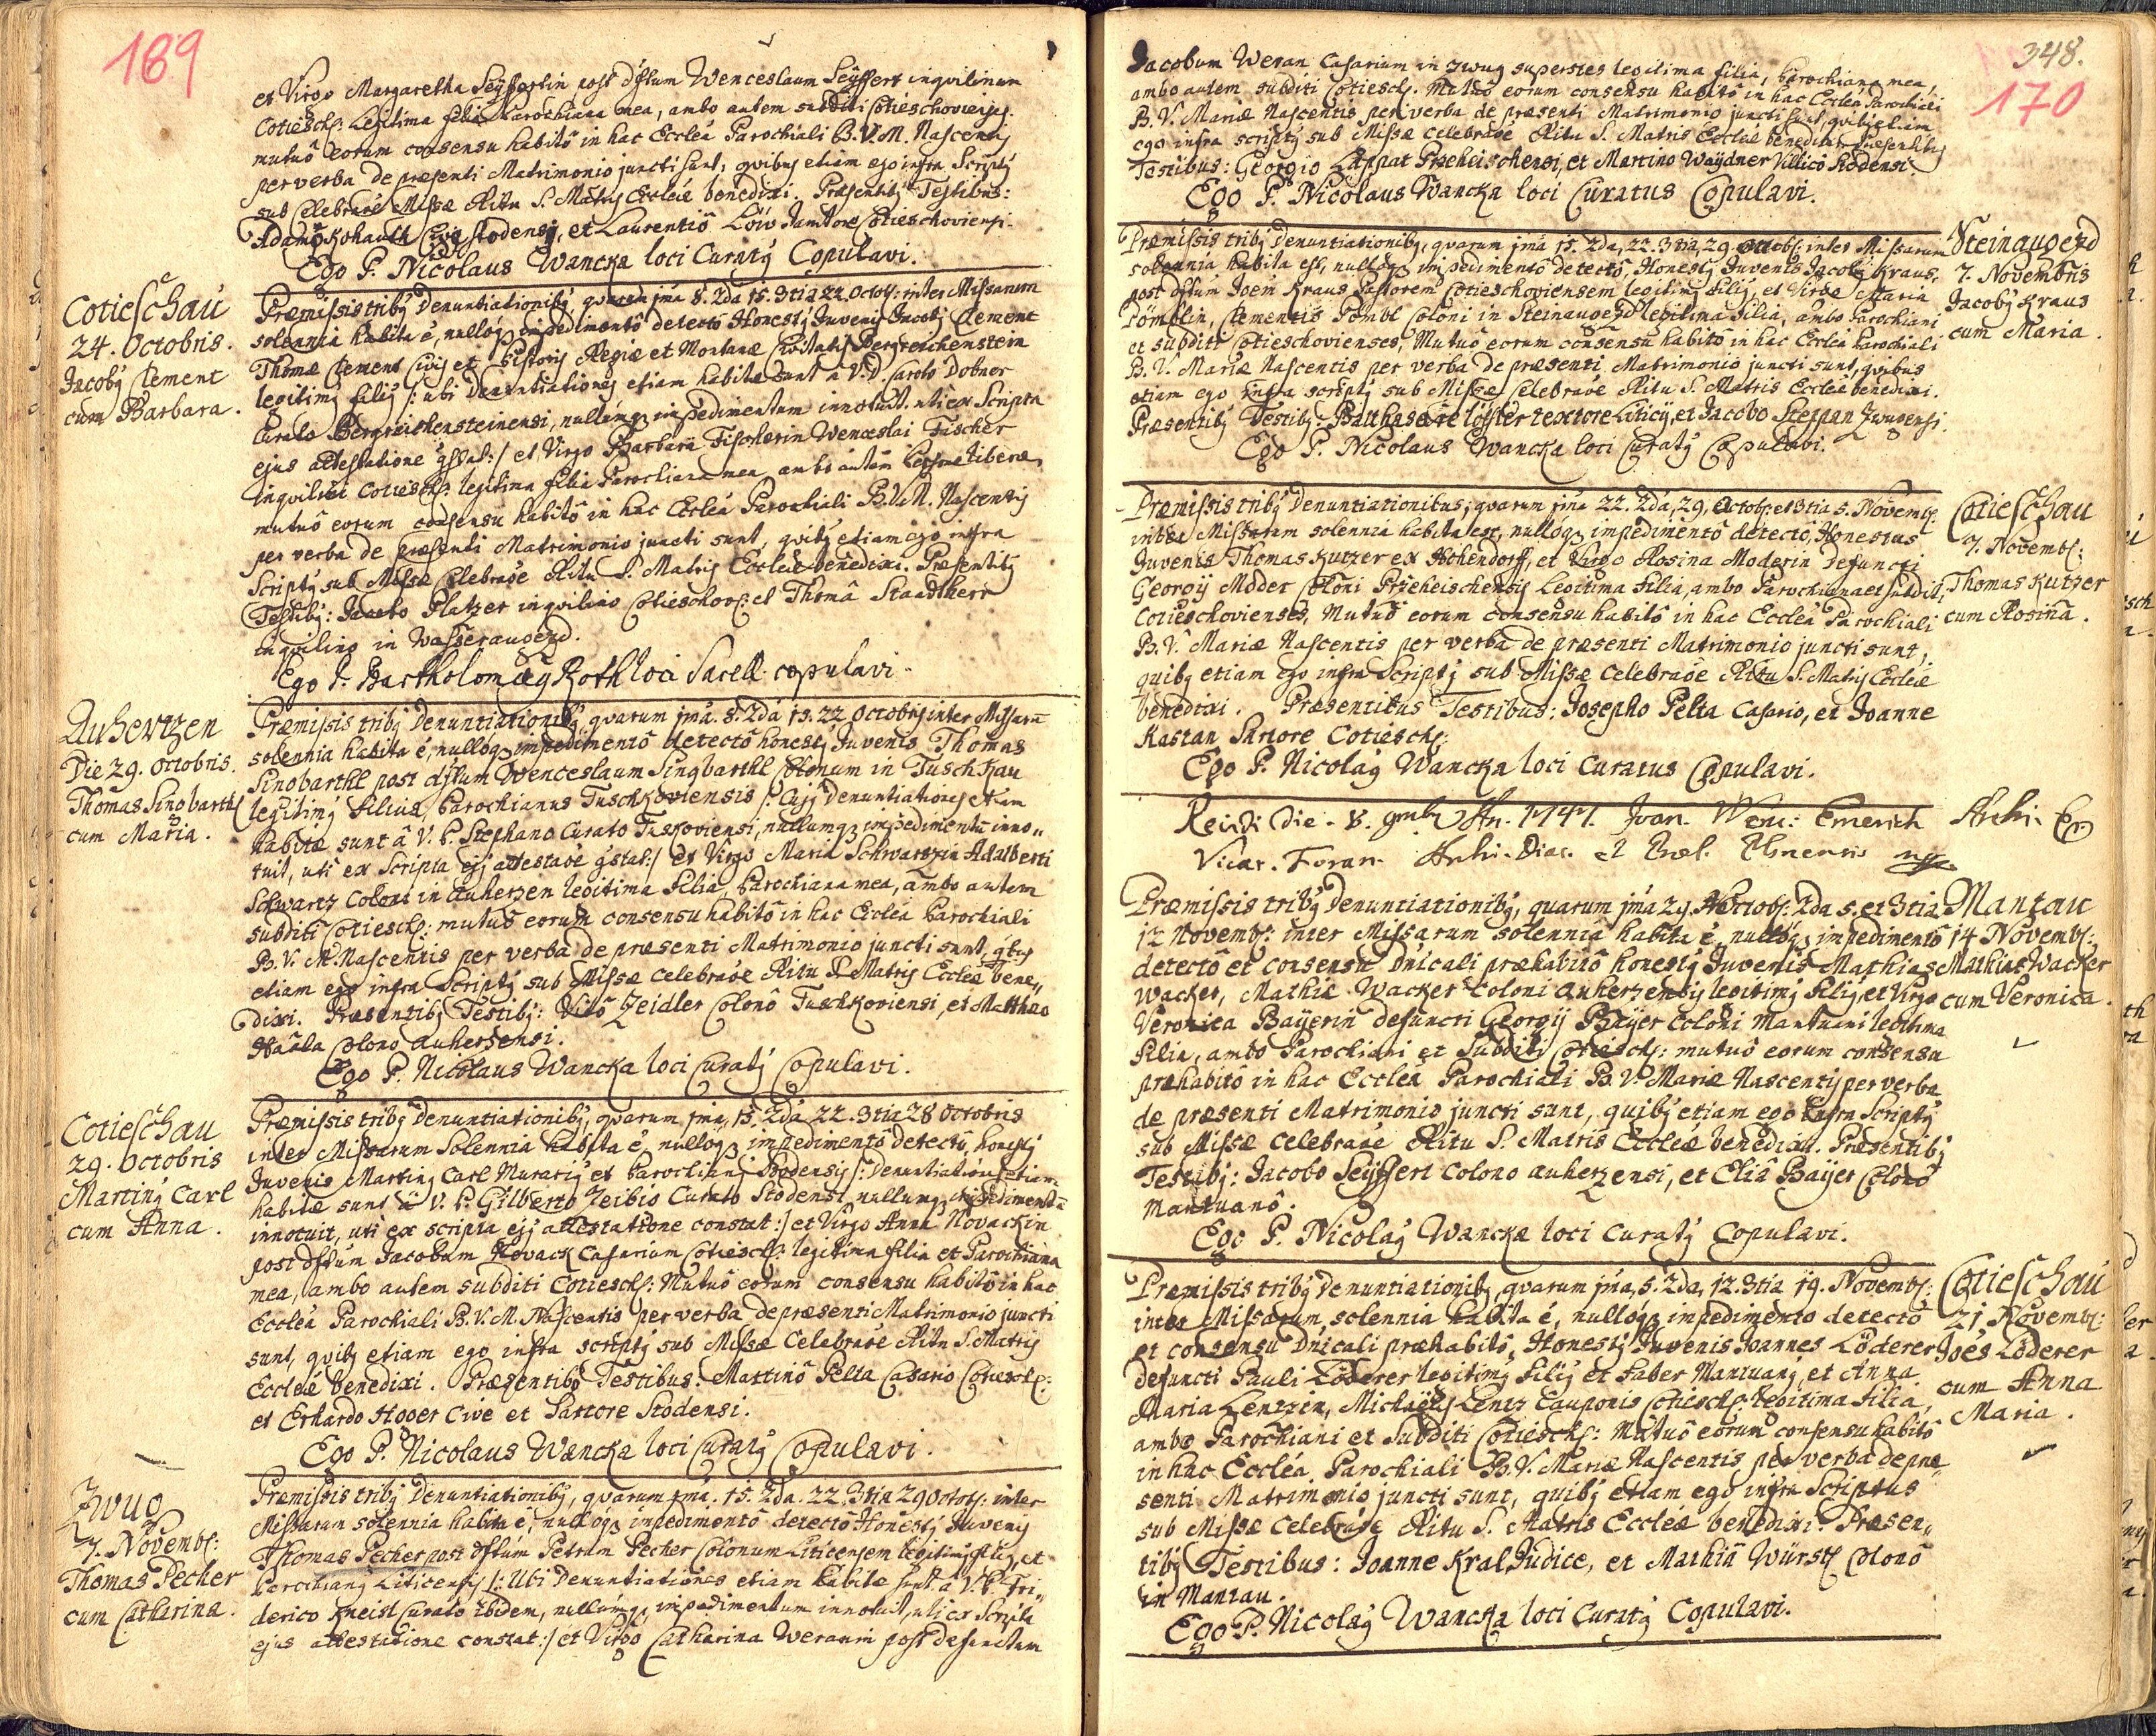 189
et Virgo Margaretha Seÿffertin post dftum Wenceslaum Seÿffert inqvilinum
Cotiesch: Legitima filia Parochiana mea, ambo autem subditi Cotieschovienses.
mutuô eorum consensu habitô in hac Eccleâ Parochiali B.V.M. Nascentis
per verba de præsenti Matrimonio juncti sunt, qvibus etiam ego infra Scriptus
sub Celebraõe Missæ Ritu S. Matris Eccleiæ benedixi. Præsentibus Testibus:
Adamô Kohauth Cive Stodensi, et Laurentiô Löw Janitore Cotieschoviensi.
Ego P. Nicolaus Wancka loci Curatus Copulavi.
Cotieschau
24. Octobris.
Jacobus Clement
cum Barbara.
Præmissis tribus Denuntiationibus qvarum jma 8. 2da 15. 3tia 22 Octobr: inter Missarum
solennia habita é, nullôq impedimentô detectô Honestus Juvenis Jacobus Clement
Thomæ Clement Civis et Pistoris Regiæ et Montanæ Civitatis Bergreichenstein
legitimus filius /: ubi Denuntiationes etiam habitæ sunt à V.D. Carolô Dobner
Curato Bergreichensteinensi, nullumq impedimentum innotuit. uti ex Scripta
ejus attestatione gstat:/ et Virgo Barbara Fischerin Wenceslai Fischer
inqvilini Cotiesch: legitima filia Parochiana mea, ambo autem Personæ liberæ,
mutuô eorum consensu habitô in hac Eccleâ Parochiali B.V.M. Nascentis
per verba de præsenti Matrimonio juncti sunt, qvibus etiam ego infra
Scriptus sub Missæ Celebraõe Ritu S. Matris Eccleiæ benedixi. Præsentibus
Testibus: Jacobo Platzer inqvilino Cotieschov: et Thomâ Staadtherr
inqvilino in Wasseraugezd.
Ego P. Bartholomæus Roth loci Sacell. copulavi.
Auhertzen
Die 29. Octobris.
Thomas Singbarthl
cum Maria.
Præmissis tribus Denuntiationibus qvarum jma. 8. 2da 15. 22 Octobris inter Missarũ
solennia habita é, nullôq impedimentô detectô honestus Juvenis Thomas
Singbarthl post dftum Wenceslaum Singbarthl Colonum in Tuschkau
legitimus filius, Parochianus Tuschkoviensis /: Cujus Denuntiationes etiam
habitæ sunt à V.P. Stephano Curato Tuskoviensi, nullumq impedimentũ inno„
tuit, uti ex Scripta ejus attestaõe gstat:/ et Virgo Maria Schwartzin Adalberti
Schwartz Coloni in Auherzen legitima filia, Parochiana mea, ambo autem
subditi Cotiesch: mutuô eorum consensu habitô in hac Eccleâ Parochiali
B.V.M. Nascentis per verba de præsenti Matrimonio juncti sunt, qbus
etiam ego infra Scriptus sub Missæ celebraõe Ritu S. Matris Eccleæ bene„
dixi. Præsentibus Testibus: Vitô Zeidler Colonô Tuschkoviensi, et Matthæo
Haala Colono Auherzensi.
Ego P. Nicolaus Wancka loci Curatus Copulavi.
Cotieschau
29. Octobris
Martinus Carl
cum Anna.
Præmissis tribus Denuntiationibus, qvarum jma, 15. 2da 22. 3tia 28 Octobris
inter Missarum Solennia habita é, nullôq impedimentô detectô, honestus
Juvenis Martinus Carl Murarius et Parochianus Stodensis /: Denuntiationes etiam
habitæ sunt à V.P. Gilberto Zeibis Curato Stodensi, nullumq impedimentũ
innotuit, uti ex scripta ejus attestatione constat:/ et Virgo Anna Novackin
post dftum Jacobum Novack Casarium Cotiesch: legitima filia et Parochiana
mea, ambo autem subditi Cotiesch: Mutuô eorum consensu habitô in hac
Eccleâ Parochiali B.V.M. Nascentis per verba de præsenti Matrimonio juncti
sunt, qvibus etiam ego infra scriptus sub Missæ Celebraõe Ritu S. Matris
Eccleiæ benedixi. Præsentibus Testibus: Martinô Pelta Casario Cotiesch:
et Erhardo Hoger Cive et Sartore Stodensi.
Ego P. Nicolaus Wancka loci Curatus Copulavi.
Zwug
7. Novemb:
Thomas Pecher
cum Catharina.
Præmissis tribus Denuntiationibus, qvarum jma. 15. 2da. 22. 3tia 29 Octob: inter
Missarum solennia habita é, nullôq impedimentô detectô Honestus Juvenis
Thomas Pecher post dftum Petrum Pecher Colonum Liticensem legitimus filius, et
Parochianus Liticensis /: Ubi Denuntiationes etiam habitæ sunt à V.P. Fri„
derico Kneisl Curato ibidem, nullumq impedimentum innotuit, uti ex Scripta
ejus attestatione constat:/ et Virgo Catharina Weranin post defunctum
348.
170
Jacobum Weran Casarium in Zwug superstes legitima filia, Parochiana mea,
ambo autem subditi Cotiesch. Mutuô eorum consensu habitô in hac Eccleâ Parochiali
B.V. Mariæ Nascentis per verba de præsenti Matrimonio juncti sunt, qvibus etiam
ego infra scriptus sub Missæ celebraõe Ritu S. Matris Eccleiæ benedixi. Præsentibus
Testibus: Georgio Lappat Przeheischensi, et Martino Waÿdner Villico Rodensi.
Ego P. Nicolaus Wancka loci Curatus Copulavi.
Præmissis tribus Denuntiationibus, qvarum jma 15. 2da, 22. 3tia, 29. Octob: inter Missarum
solennia habita est, nullôq impedimentô detectô, Honestus Juvenis Jacobus Kraus,
post dftum Joem Kraus Pastorem Cotieschoviensem legitimus filius, et Virgo Maria
Pömblin, Clementis Pömbl Coloni in Steinaugezd legitima filia, ambo Parochiani
et subditi Cotieschovienses, Mutuô eorum consensu habitô in hac Eccleâ Parochiali
B.V. Mariæ Nascentis per verba de præsenti Matrimonio juncti sunt, qvibus
etiam ego infra scriptus sub Missæ Celebraõe Ritu S. Matris Eccleiæ benedixi.
Præsentibus Testibus: Balthasare Löffler textore Liticij, et Jacobo Steppan Zwugensi.
Ego P. Nicolaus Wancka loci Curatus Copulavi.
Steinaugezd
7. Novembris
Jacobus Kraus
cum Maria.
Præmissis tribus Denuntiationibus, qvarum jma 22. 2da, 29, Octob: et 3tia 5. Novemb:
inter Missarum solennia habita est, nullôq impedimentô detectô, Honestus
Juvenis Thomas Kutzer ex Hohendorff, et Virgo Rosina Moderin Defuncti
Georgij Moder Coloni Przeheischensis Legitima filia, ambo Parochiani et subditi
Cotieschovienses, Mutuô eorum consensu habitô in hac Eccleâ Parochiali
B.V. Mariæ Nascentis per verba de præsenti Matrimonio juncti sunt,
quibus etiam ego infra Scriptus sub Missæ Celebraõe Ritu S. Matris Eccleiæ
benedixi. Præsentibus Testibus: Josepho Pelta Casario, et Joanne
Kastan Sartore Cotiesch:
Ego P. Nicolaus Wancka loci Curatus Copulavi.
Cotieschau
7. Novemb:
Thomas Kutzer
cum Rosina.
Die 8. An. 1747. Joan. Wen: Emerich Archi.
Vicar. Foran. Archi-Diac.
Præmissis tribus Denuntiationibus, quarum jma 29. Octob: 2da 5. et 3tia
12 Novemb: inter Missarum solennia habita é, nullôq impedimentô
detectô et consensu Dnicali præhabitô honestus Juvenis Mathias
Wacker, Mathiæ Wacker Coloni Auherzensis legitimus filius, et Virgo
Veronica Baÿerin defuncti Georgij Baÿer Coloni Mantuani legitima
filia, ambo Parochiani et Subditi Cotiesch: mutuô eorum consensu
præhabitô in hac Eccleâ Parochiali B.V. Mariæ Nascentis per verba
de præsenti Matrimonio juncti sunt, quibus etiam ego infra Scriptus
sub Missæ celebraõe Ritu S. Matris Eccleiæ benedixi. Præsentibus
Testibus: Jacobo Seÿffert Colono Auherzensi, et Eliâ Baÿer Colonô
Mantuanô.
Ego P. Nicolaus Wancka loci Curatus Copulavi.
Mantau
14 Novemb:
Mathias Wacker
cum Veronica.
Præmissis tribus Denuntiationibus, qvarum jma, 5. 2da, 12. 3tia 19. Novemb:
inter Missarum solennia habita é, nullôq impedimento detectô
et consensu Dnicali præhabitô, Honestus Juvenis Joannes Löderer
defuncti Pauli Löderer legitimus filius et Faber Mantuanus, et Anna
Maria Lentzin, Michaëlis Lentz Cauponis Cotiesch: legitima filia,
ambo Parochiani et Subditi Cotiesch: Mutuô eorum consensu habitô
in hac Eccleâ Parochiali B.V. Mariæ Nascentis per verba de præ„
senti Matrimonio juncti sunt, quibus etiam ego infra Scriptus
sub Missæ Celebraõe Ritu S. Matris Eccleiæ benedixi. Præsen„
tibus Testibus: Joanne Kral Judice, et Mathiâ Würstl Colonô
in Mantau.
Ego P. Nicolaus Wancka loci Curatus Copulavi.
Cotieschau
21. Novemb:
Joês Löderer
cum Anna
Maria.